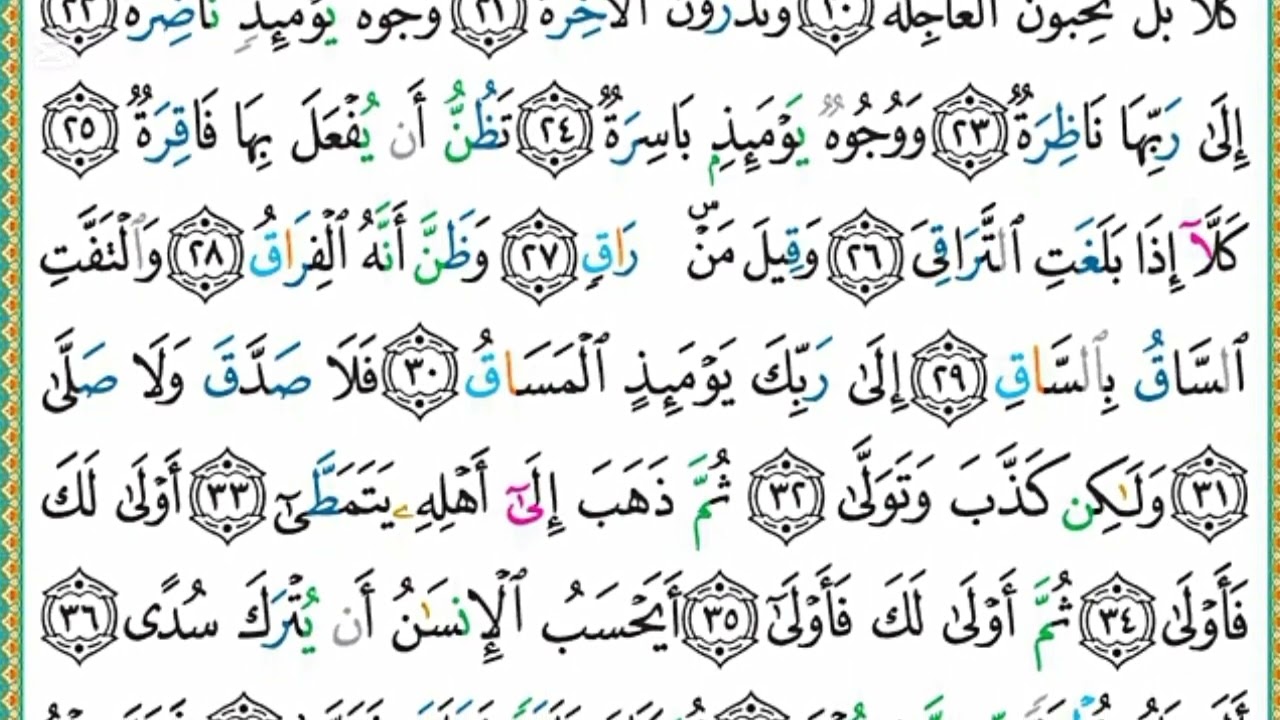 كَلَّا بَلْ تُحِبُّونَ ٱلْعَاجِلَةَ ٢٠ وَتَذَرُونَ ٱلْـَٔاخِرَةَ ٢١ وُجُوهٌ يَوْمَئِذٍ نَّاضِرَةٌ ٢٢
إِلَىٰ رَبِّهَا نَاظِرَةٌ ٢٣ وَوُجُوهٌ يَوْمَئِذٍۭ بَاسِرَةٌ ٢٤ تَظُنُّ أَن يُفْعَلَ بِهَا فَاقِرَةٌ ٢٥
كَلَّآ إِذَا بَلَغَتِ ٱلتَّرَاقِىَ ٢٦ وَقِيلَ مَنْ ۜ رَاقٍ ٢٧ وَظَنَّ أَنَّهُ ٱلْفِرَاقُ ٢٨ وَٱلْتَفَّتِ
ٱلسَّاقُ بِٱلسَّاقِ ٢٩ إِلَىٰ رَبِّكَ يَوْمَئِذٍ ٱلْمَسَاقُ ٣٠ فَلَا صَدَّقَ وَلَا صَلَّىٰ
٣١ وَلَٰكِن كَذَّبَ وَتَوَلَّىٰ ٣٢ ثُمَّ ذَهَبَ إِلَىٰٓ أَهْلِهِۦ يَتَمَطَّىٰٓ ٣٣ أَوْلَىٰ لَكَ
فَأَوْلَىٰ ٣٤ ثُمَّ أَوْلَىٰ لَكَ فَأَوْلَىٰٓ ٣٥ أَيَحْسَبُ ٱلْإِنسَٰنُ أَن يُتْرَكَ سُدًى ٣٦